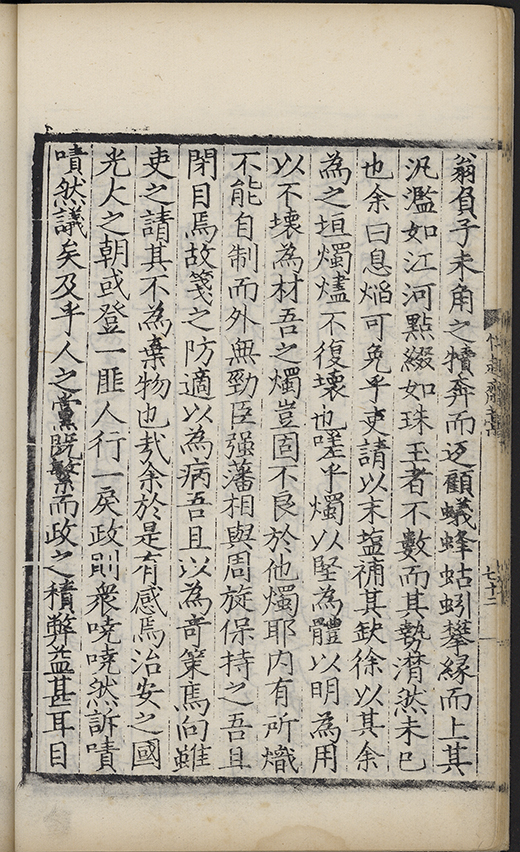 翁負子未角之犢奔而迈顧蟻蜂蛄蚓攀緣而上其
汎濫如江河點綴如珠玉者不數而其勢潸然未已
也余曰息熖可免乎吏請以末塩補其缺徐以其余
為之垣燭燼不復壊也嗟乎燭以堅為體以明為用
以不壊為材吾之燭豈固不良於他燭耶内有所熾
不能自制而外無勁臣强藩相與周旋保持之吾且
閉目焉故箋之防適以為病吾且以為竒策焉向雖
吏之請其不為棄物也㢤余於是有感焉治安之國
光大之朝或登一匪人行一戾政則衆嘵嘵然訴嘖
嘖然議矣及乎人之黨既繁而政之積弊益甚耳目
七十二